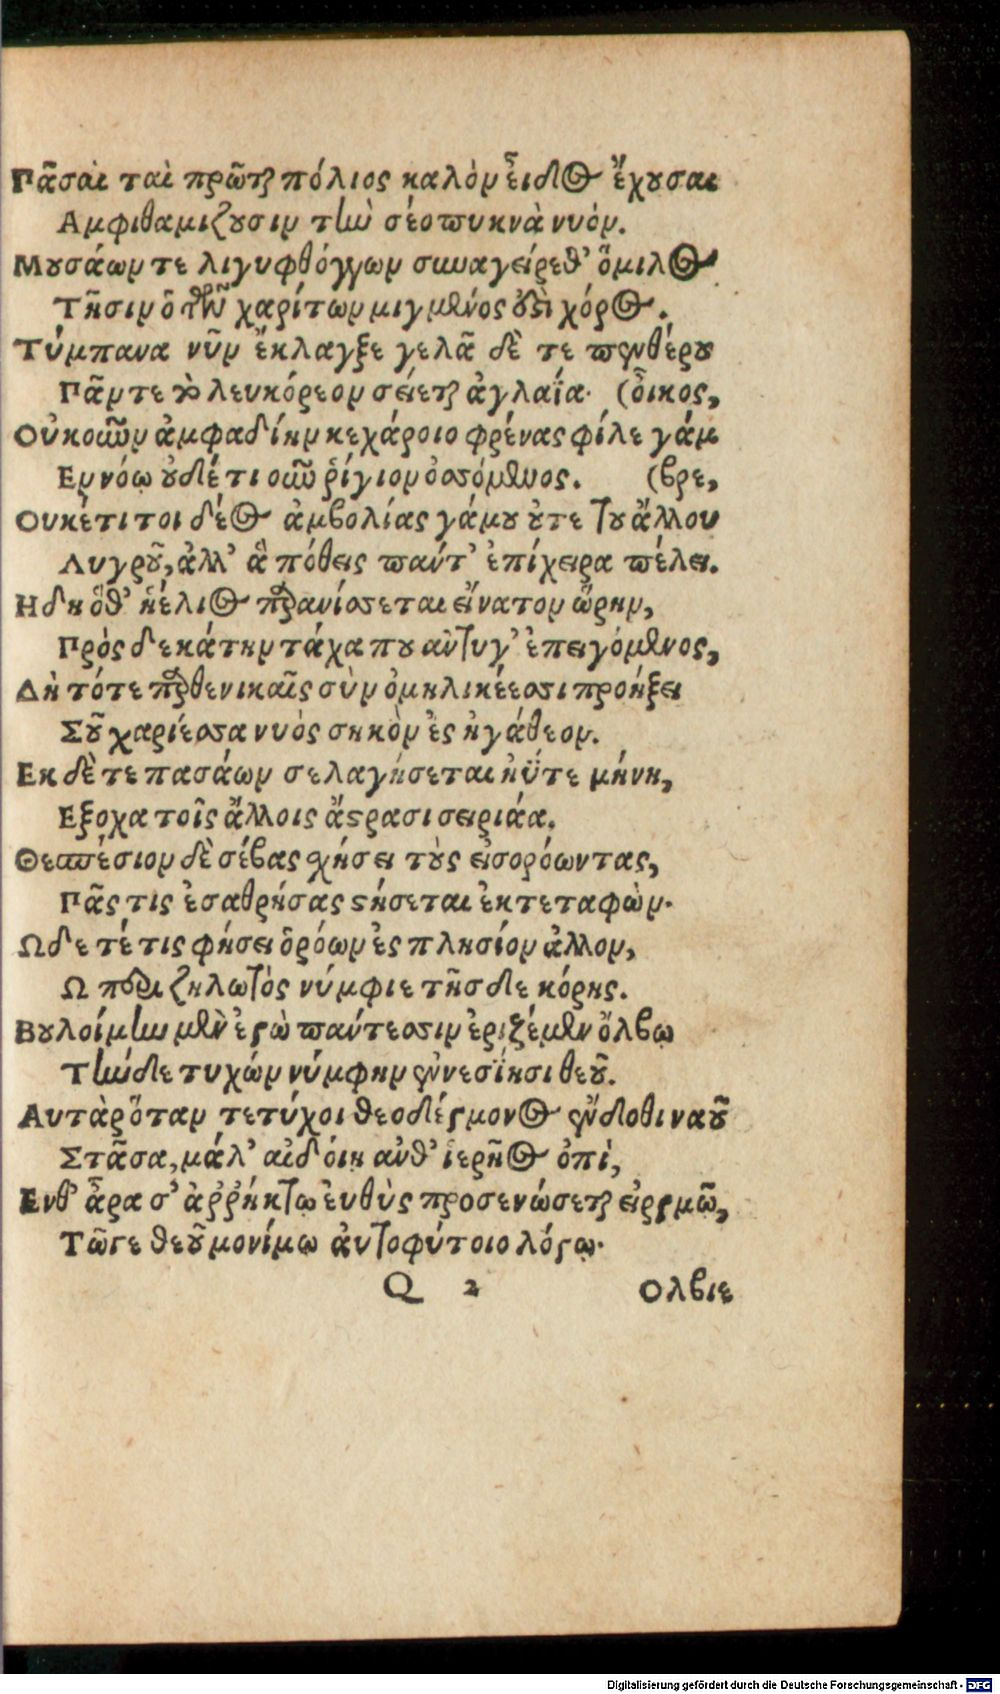 Πᾶσαι ταὶ πρῶται πόλιος καλὸν εἶδος ἔχουσαι
Αμφιθαμιζουσιν τὴν σέο πυκνὰ νυόν.
Μουσάων τε λιγυφθόγγων συναγείρεθ' ὅμιλος
Τῇσιν ὁ τῶν χαρίτων μιγμένος ἐστὶ χόρος.
Τύμπανα νῦν ἔκλαγξε γελᾶ δὲ τε πενθέρου
Πᾶν τε γὸ λευκόρεον σείεται ἀγλαΐα· (οἶκος,
Οὐκοῦν ἀμφαδίην κεχάροιο φρένας φίλε γάμ
Εν νόῳ οὐδέ τι σοῦ ῥίγιον ὁσσόμενος. (βρε,
Ουκέτι τοι δέος ἀμβολίας γάμου οὐτε του ἄλλου
Λυγροῦ, ἀλλ' ἃ πόθεις παντ' ἐπίχειρα πέλει.
Ηδη ὅθ' ἠέλιος παρανίσσεται εἴνατον ὥρην,
Πρὸς δεκάτην τάχα που αντυγ' ἐπειγόμενος,
Δὴ τότε παρθενικαῖς σὺν ὁμηλικέεσσι προήξει
Σοῦ χαρίεσσα νυὸς σηκὸν ἐς ἠγάθεον.
Εκ δὲ τε πασάων σελαγήσεται ἠΰτε μήνη,
Εξοχα τοῖς ἄλλοις ἄστρασι σειριάα.
Θεσπέσιον δὲ σέβας σχήσει τοὺς εἰσορόωντας,
Πᾶς τις ἐσαθρήσας στήσεται ἐκτεταφὼν·
Ωδε τέ τις φήσει ὁρόων ἐς πλησίον ἄλλον,
Ω πόσι ζηλωτὸς νύμφιε τῆσδε κόρης.
Βουλοίμην μὲν ἐγὼ πάντεσσιν ἐριζέμεν ὄλβῳ
Τήνδε τυχών νύμφην ἐννεσΐησι θεοῦ.
Αυτὰρ ὅταν τετύχοι θεοδέγμονος ἔνδοθι ναοῦ
Στᾶσα, μάλ' αιδόιη ανθ' ἱερῆος ὀπὶ,
Ενθ' ἆρα σ' ἀῤῥήκτῳ ἐυθὺς προσενώσεται εἱργμῶ,
Τῶγε θεοῦ μονίμῳ ἀυτοφύτοιο λόγῳ·
Q 2 Ολβιε
Digitalisierung gefördert durch die Deutsche Forschungsgemeinschaft - DFG